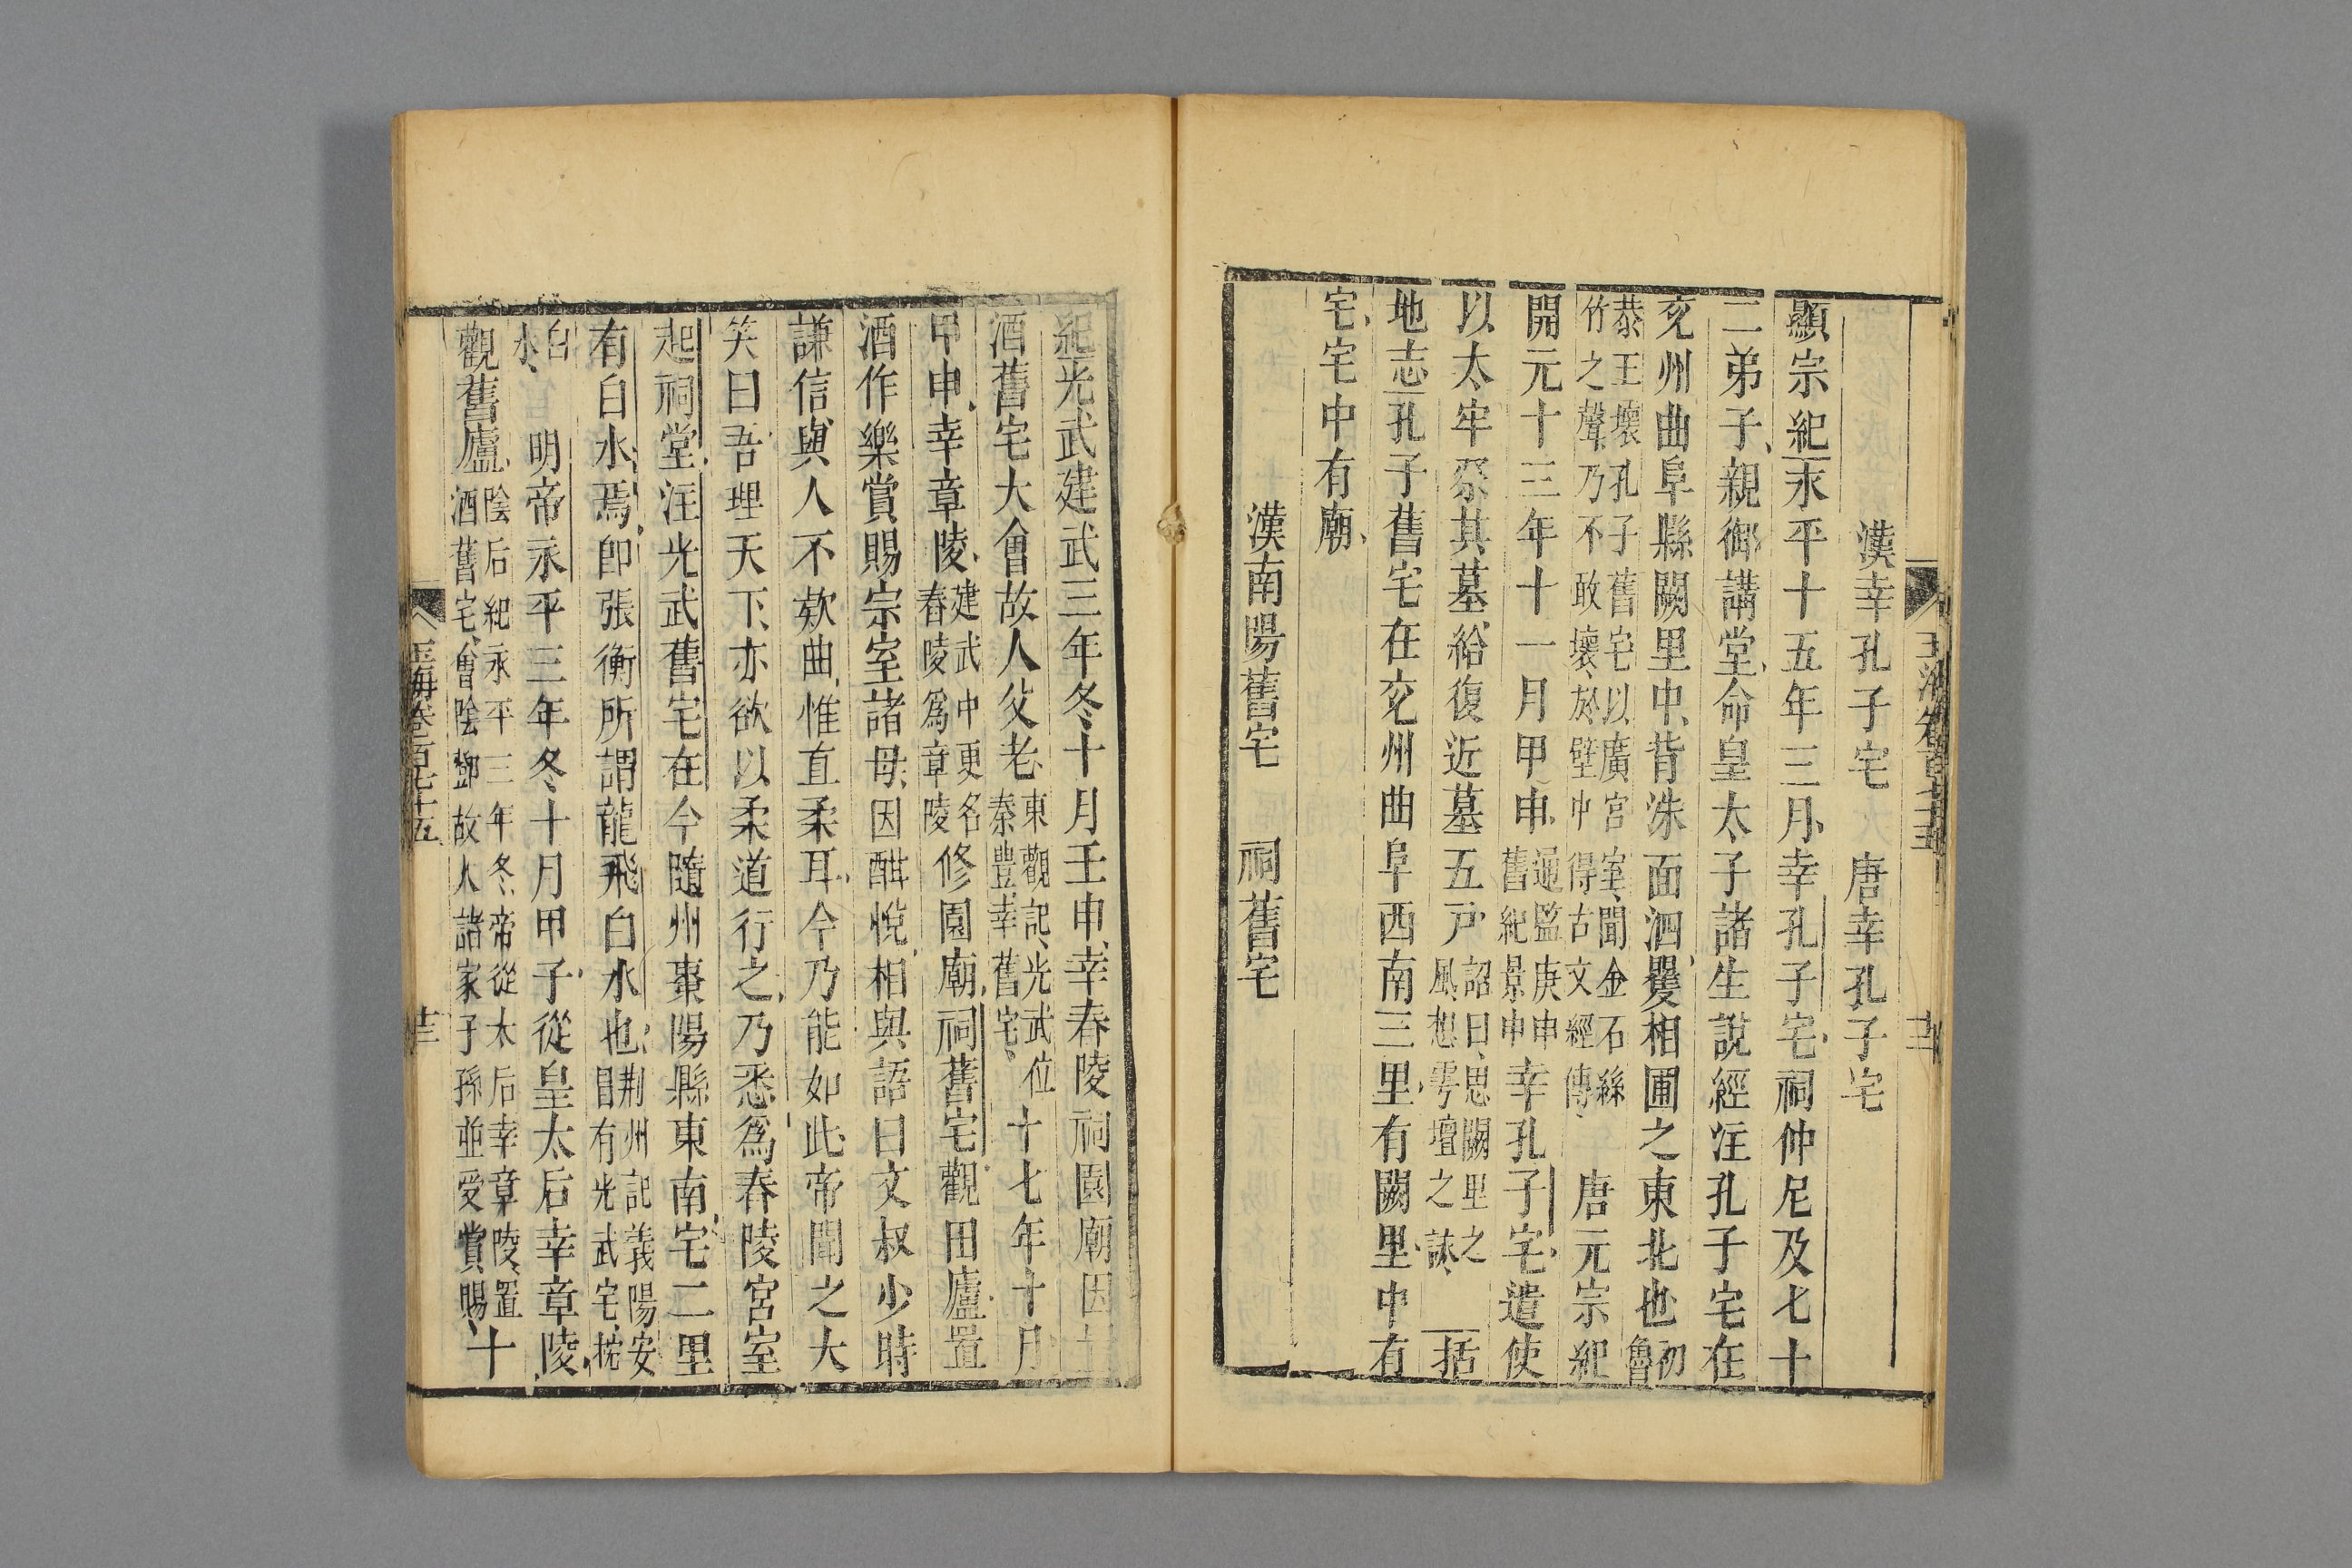 玉海卷百七十五
十二
漢幸孔子宅 唐幸孔子宅
顯宗紀永平十五年三月幸孔子宅祠仲尼及七十
二弟子親御講堂命皇太子諸生說經注孔子宅在
兖州曲阜縣闕里中背洙面泗矍相圃之東北也初魯
恭王壞孔子舊宅以廣宮室聞金石絲
竹之聲乃不敢壞於壁中得古文經傳 唐元宗紀
開元十三年十一月甲申通監庚申舊紀景申幸孔子宅遣使
以太牢祭其墓給復近墓五戶詔曰思闕里之風想雩壇之詠 括
地志孔子舊宅在兖州曲阜西南三里有闕里中有
宅宅中有廟
漢南陽舊宅 祠舊宅
紀光武建武三年冬十月壬申幸舂陵祠園廟因
酒舊宅大會故人父老東觀記光武位秦豐幸舊宅十七年十月
甲申幸章陵建武中更名舂陵爲章陵修園廟祠舊宅觀田廬置
酒作樂賞賜宗室諸母因酣悅相與語曰文叔少時
謹信與人不欵曲惟直柔耳今乃能如此帝聞之大
笑曰吾理天下亦欲以柔道行之乃悉爲舂陵宮室
起祠堂注光武舊宅在今隨州棗陽縣東南宅二里
有白水焉即張衡所謂龍飛白水也荆州記義陽安昌有光武宅枕
白水 明帝永平三年冬十月甲子從皇太后幸章陵
觀舊廬陰后紀永平三年冬帝從太后幸章陵置酒舊宅會陰鄧故人諸家子孫並受賞賜十
玉海卷百七十五
十三